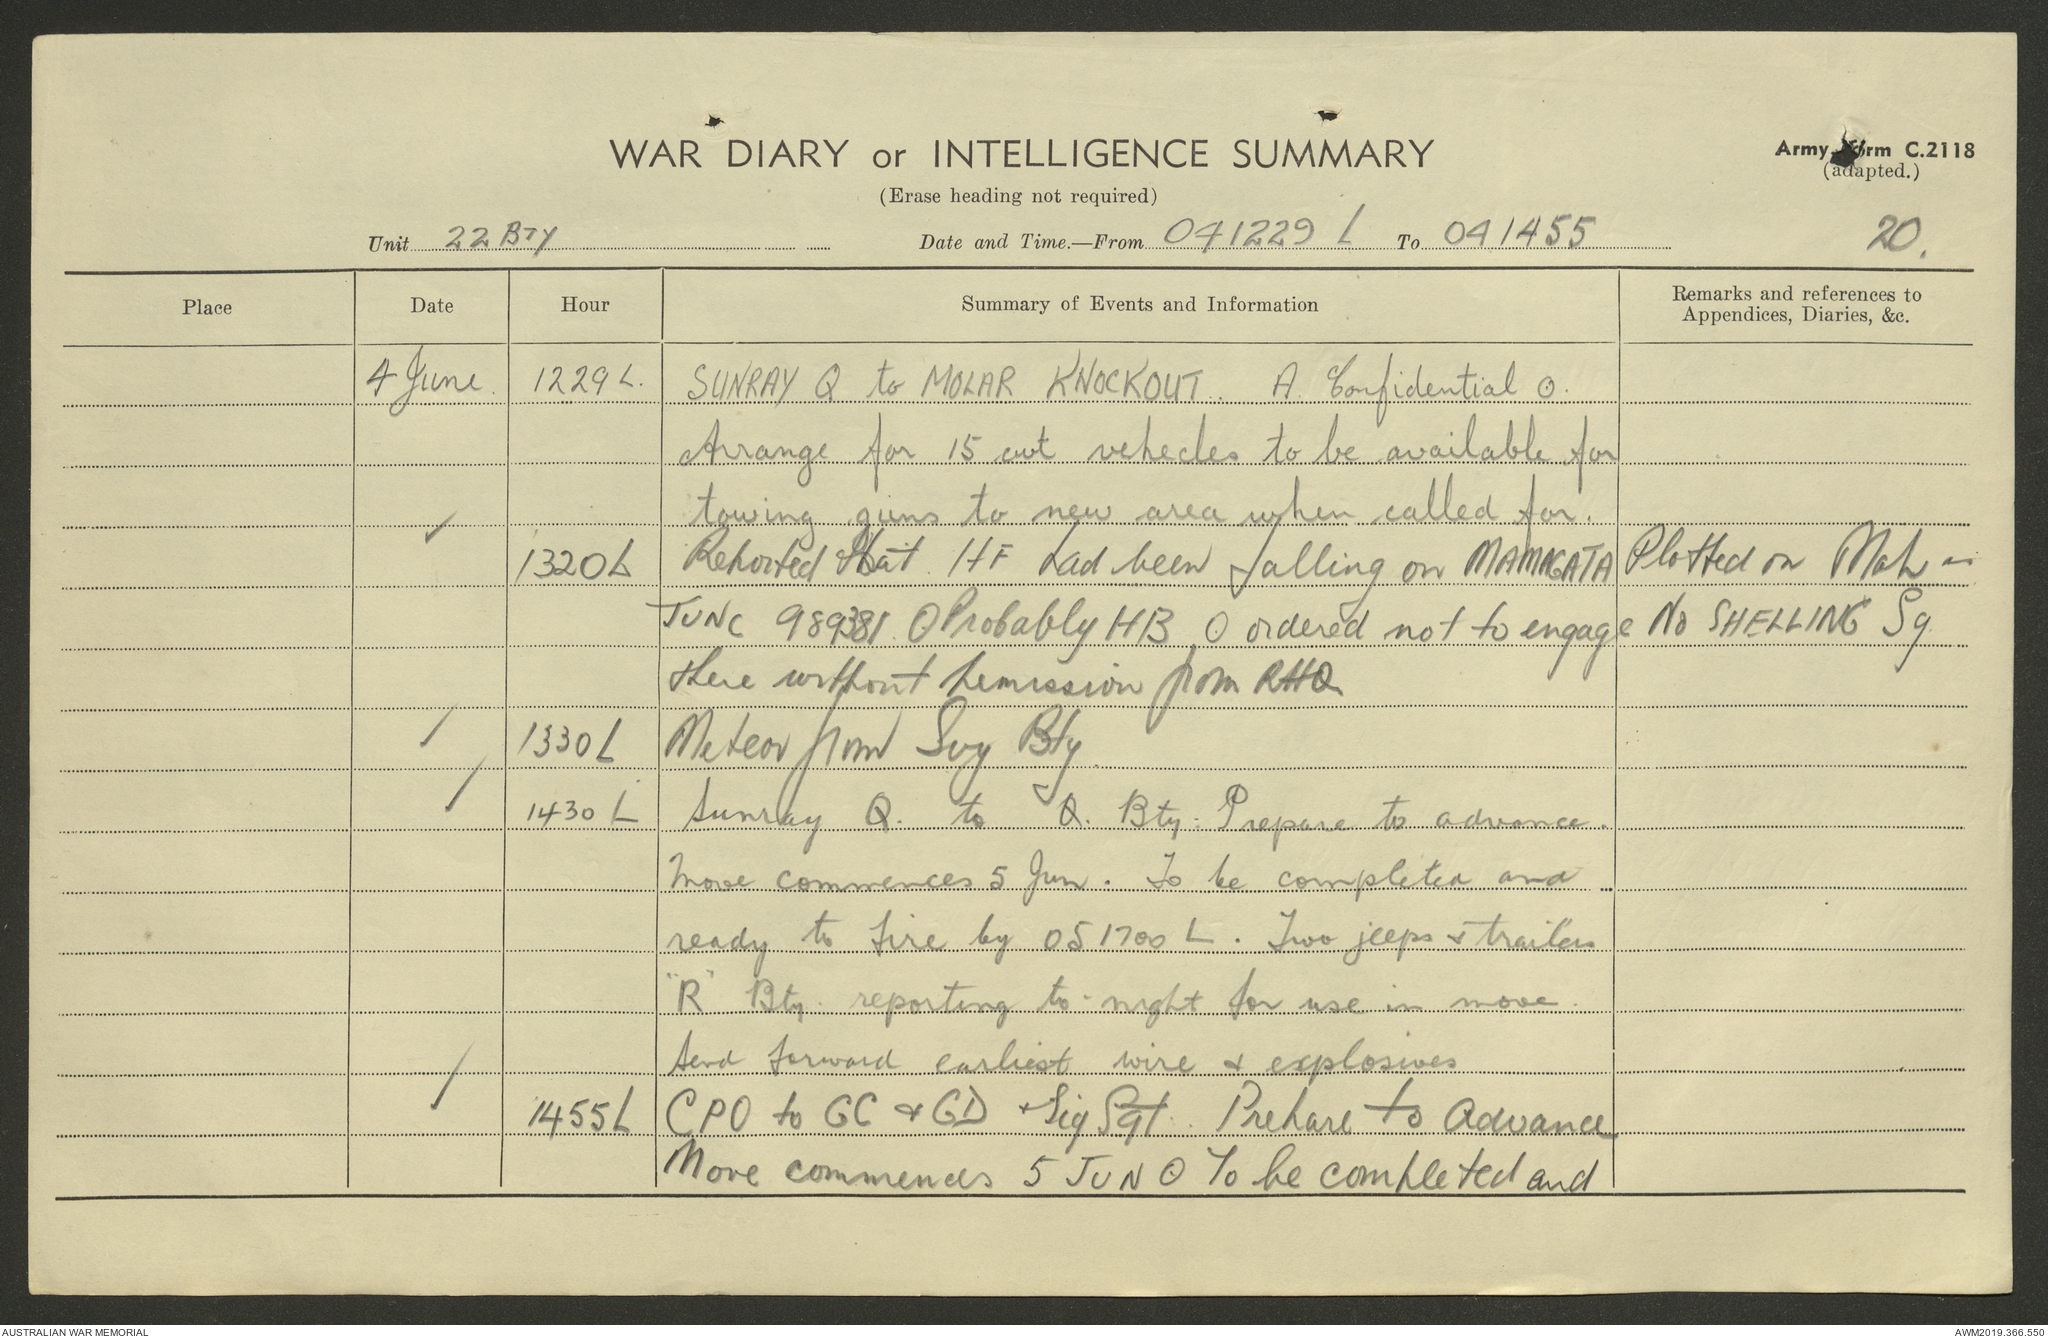 WAR DIARY or INTELLIGENCE SUMMARY
Army Form C.2118
(adapted.)
(Erase heading not required)
Unit 22 BTY Date and Time.—From 041229 L To 041455 20.
Place Date Hour Summary of Events and Information Remarks and references to Appendices, Diaries, &c.
4 June. 1229 L. SUNRAY Q to MOLAR KNOCKOUT. A Confidential O.
Arrange for 15 cwt vehecles to be available for
towing guns to new area when called for.
1320 L Reported that HF had been falling on MAMAGATA Plotted on Map as
JUNC 989381 O Probably HB O ordered not to engage No SHELLING Sq
there without permission from RHQ
1330 L Meteor from Svy Bty.
1430 L Sunray Q. to Q. Bty. Prepare to advance.
Move commences 5 Jun. To be completed and
ready to fire by 051700 L. Two jeeps & trailers
"R" Bty. reporting to-night for use in move.
Send forward earliest wire & explosives
1455 L CPO to GC & GD & Sig Sgt. Prepare to Advance
Move commences 5 JUN O To be completed and
AUSTRALIAN WAR MEMORIAL AWM2019.366.550